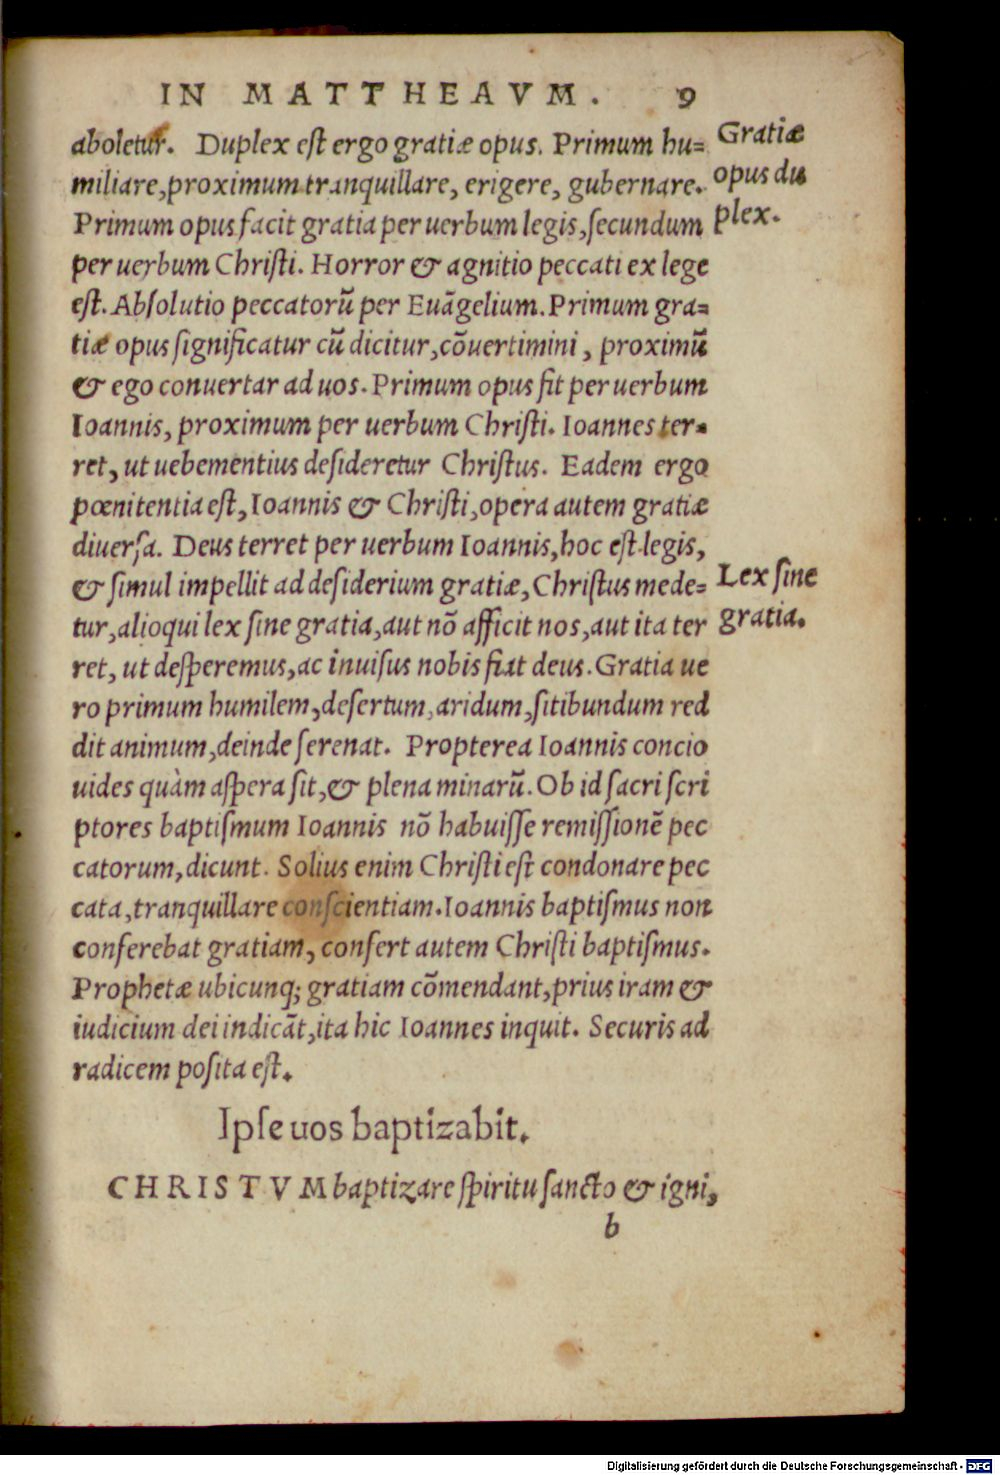 IN MATTHEAVM. 9
aboletur. Duplex eſt ergo gratiæ opus. Primum hu=
miliare, proximum tranquillare, erigere, gubernare.
Primum opus facit gratia per uerbum legis, ſecundum
per uerbum Chriſti. Horror & agnitio peccati ex lege
eſt. Abſolutio peccatorũ per Euãgelium. Primum gra=
tiæ opus ſignificatur cũ dicitur, cõuertimini, proximũ
& ego conuertar ad uos. Primum opus fit per uerbum
Ioannis, proximum per uerbum Chriſti. Ioannes ter=
ret, ut uehementius deſideretur Chriſtus. Eadem ergo
pœnitentia eſt, Ioannis & Chriſti, opera autem gratiæ
diuerſa. Deus terret per uerbum Ioannis, hoc eſt legis,
& ſimul impellit ad deſiderium gratiæ, Chriſtus mede=
tur, alioqui lex ſine gratia, aut nõ afficit nos, aut ita ter
ret, ut deſperemus, ac inuiſus nobis fiat deus. Gratia ue
ro primum humilem, deſertum, aridum, ſitibundum red
dit animum, deinde ſerenat. Propterea Ioannis concio
uides quàm aſpera ſit, & plena minarũ. Ob id ſacri ſcri
ptores baptiſmum Ioannis nõ habuiſſe remiſſionẽ pec
catorum, dicunt. Solius enim Chriſti eſt condonare pec
cata, tranquillare conſcientiam. Ioannis baptiſmus non
conferebat gratiam, confert autem Chriſti baptiſmus.
Prophetæ ubicunq; gratiam cõmendant, prius iram &
iudicium dei indicãt, ita hic Ioannes inquit. Securis ad
radicem poſita eſt.
Ipſe uos baptizabit.
CHRISTVM baptizare ſpiritu ſancto & igni,
b
Gratiæ
opus du
plex.
Lex ſine
gratia.
Digitalisierung gefördert durch die Deutsche Forschungsgemeinschaft - DFG